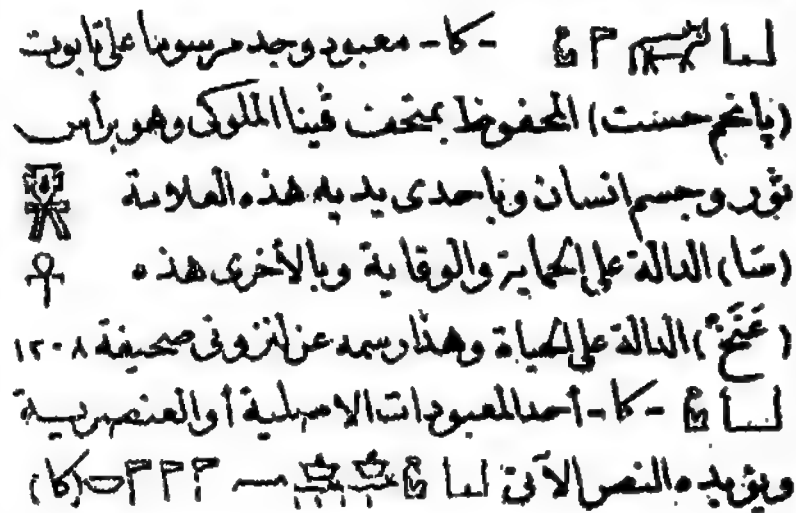 - كا - معبود وجد مرسوما على تابوت
(پانحم حسنت) المحفوظ بمتحف ڤينا الملوكى وهو برأس
ثور وجسم انسان وباحدى يديه هذه العلامة
(سَا) الدالة على الحماية والوقاية وبالأخرى هذه
(عَنَخْ) الدالة على الحياة وهذا رسمه عن لنزونى صحيفة ١٢٠٨
- كا - أحد المعبودات الاصلية أو العنصرية
ويؤيده النص الآتى (كا)